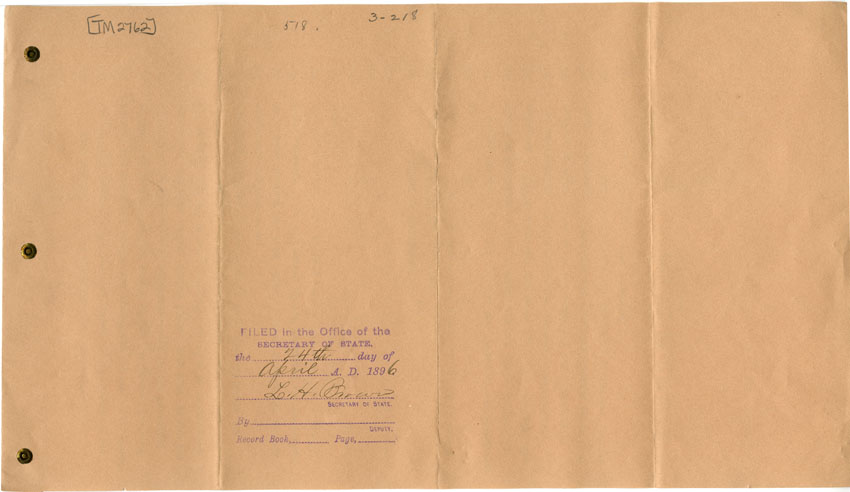 [TM2762]
518.
3-218
FILED in the Office of the
SECRETARY OF STATE,
the 24th day of
April A. D. 1896
L. H. Brown
SECRETARY OF STATE.
By
DEPUTY.
Record Book, Page,